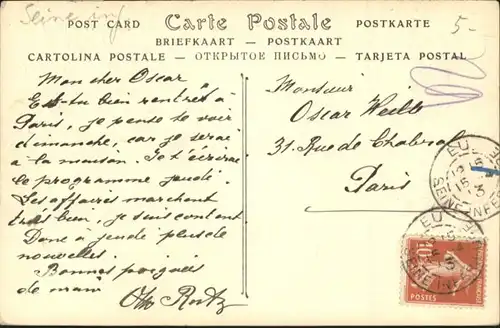 Seine inf
5-
POST CARD Carte Postale POSTKARTE
BRIEFKAART — POSTKAART
CARTOLINA POSTALE — ОТКРЫТОЕ ПИСЬМО — TARJETA POSTAL
Mon cher Oscar
Es-tu bien rentré à
Paris, je pense te voir
dimanche, car je serai
à la maison. Je t'écrirai
le programme jeudi.
Les affaires marchent
très bien, je suis content
Donc à jeudi plus de
nouvelles.
Bonnes poignées
de main
Otto
Monsieur
Oscar Weill
31 Rue de Chabrol
Paris
EU
SEINE-INFRE
EU
SEINE-INFRE
10c
POSTES